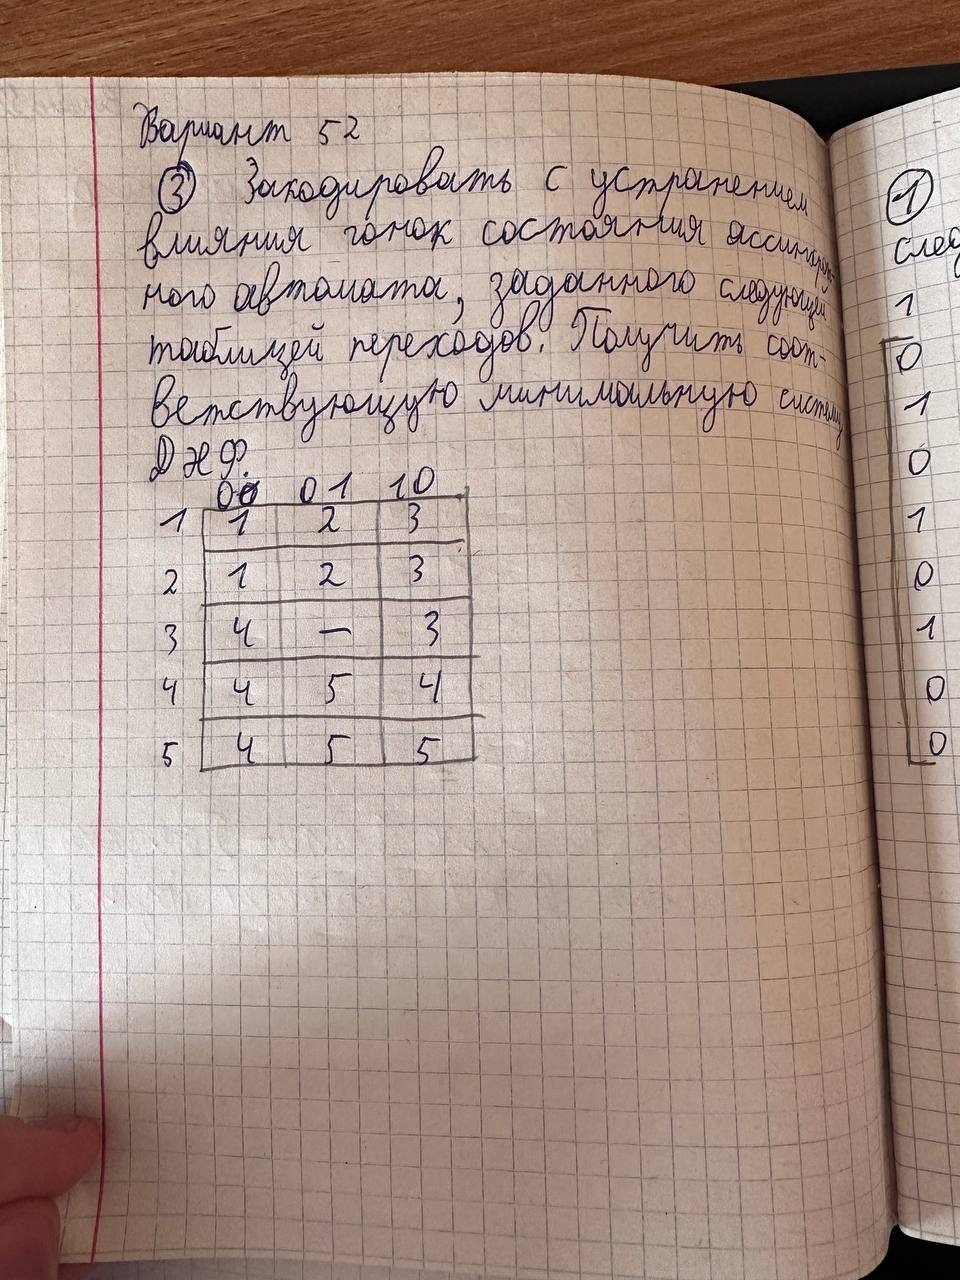 Вариант 52
③ Закодировать с устранением
влияния гонок состояния ассинхрон-
ного автомата, заданного следующей
таблицей переходов. Получить соот-
ветствующую минимальную систему
ДНФ.
00 01 10
1 1 2 3
2 1 2 3
3 4 — 3
4 4 5 4
5 4 5 5
①
след
1
0
1
0
1
0
1
0
0